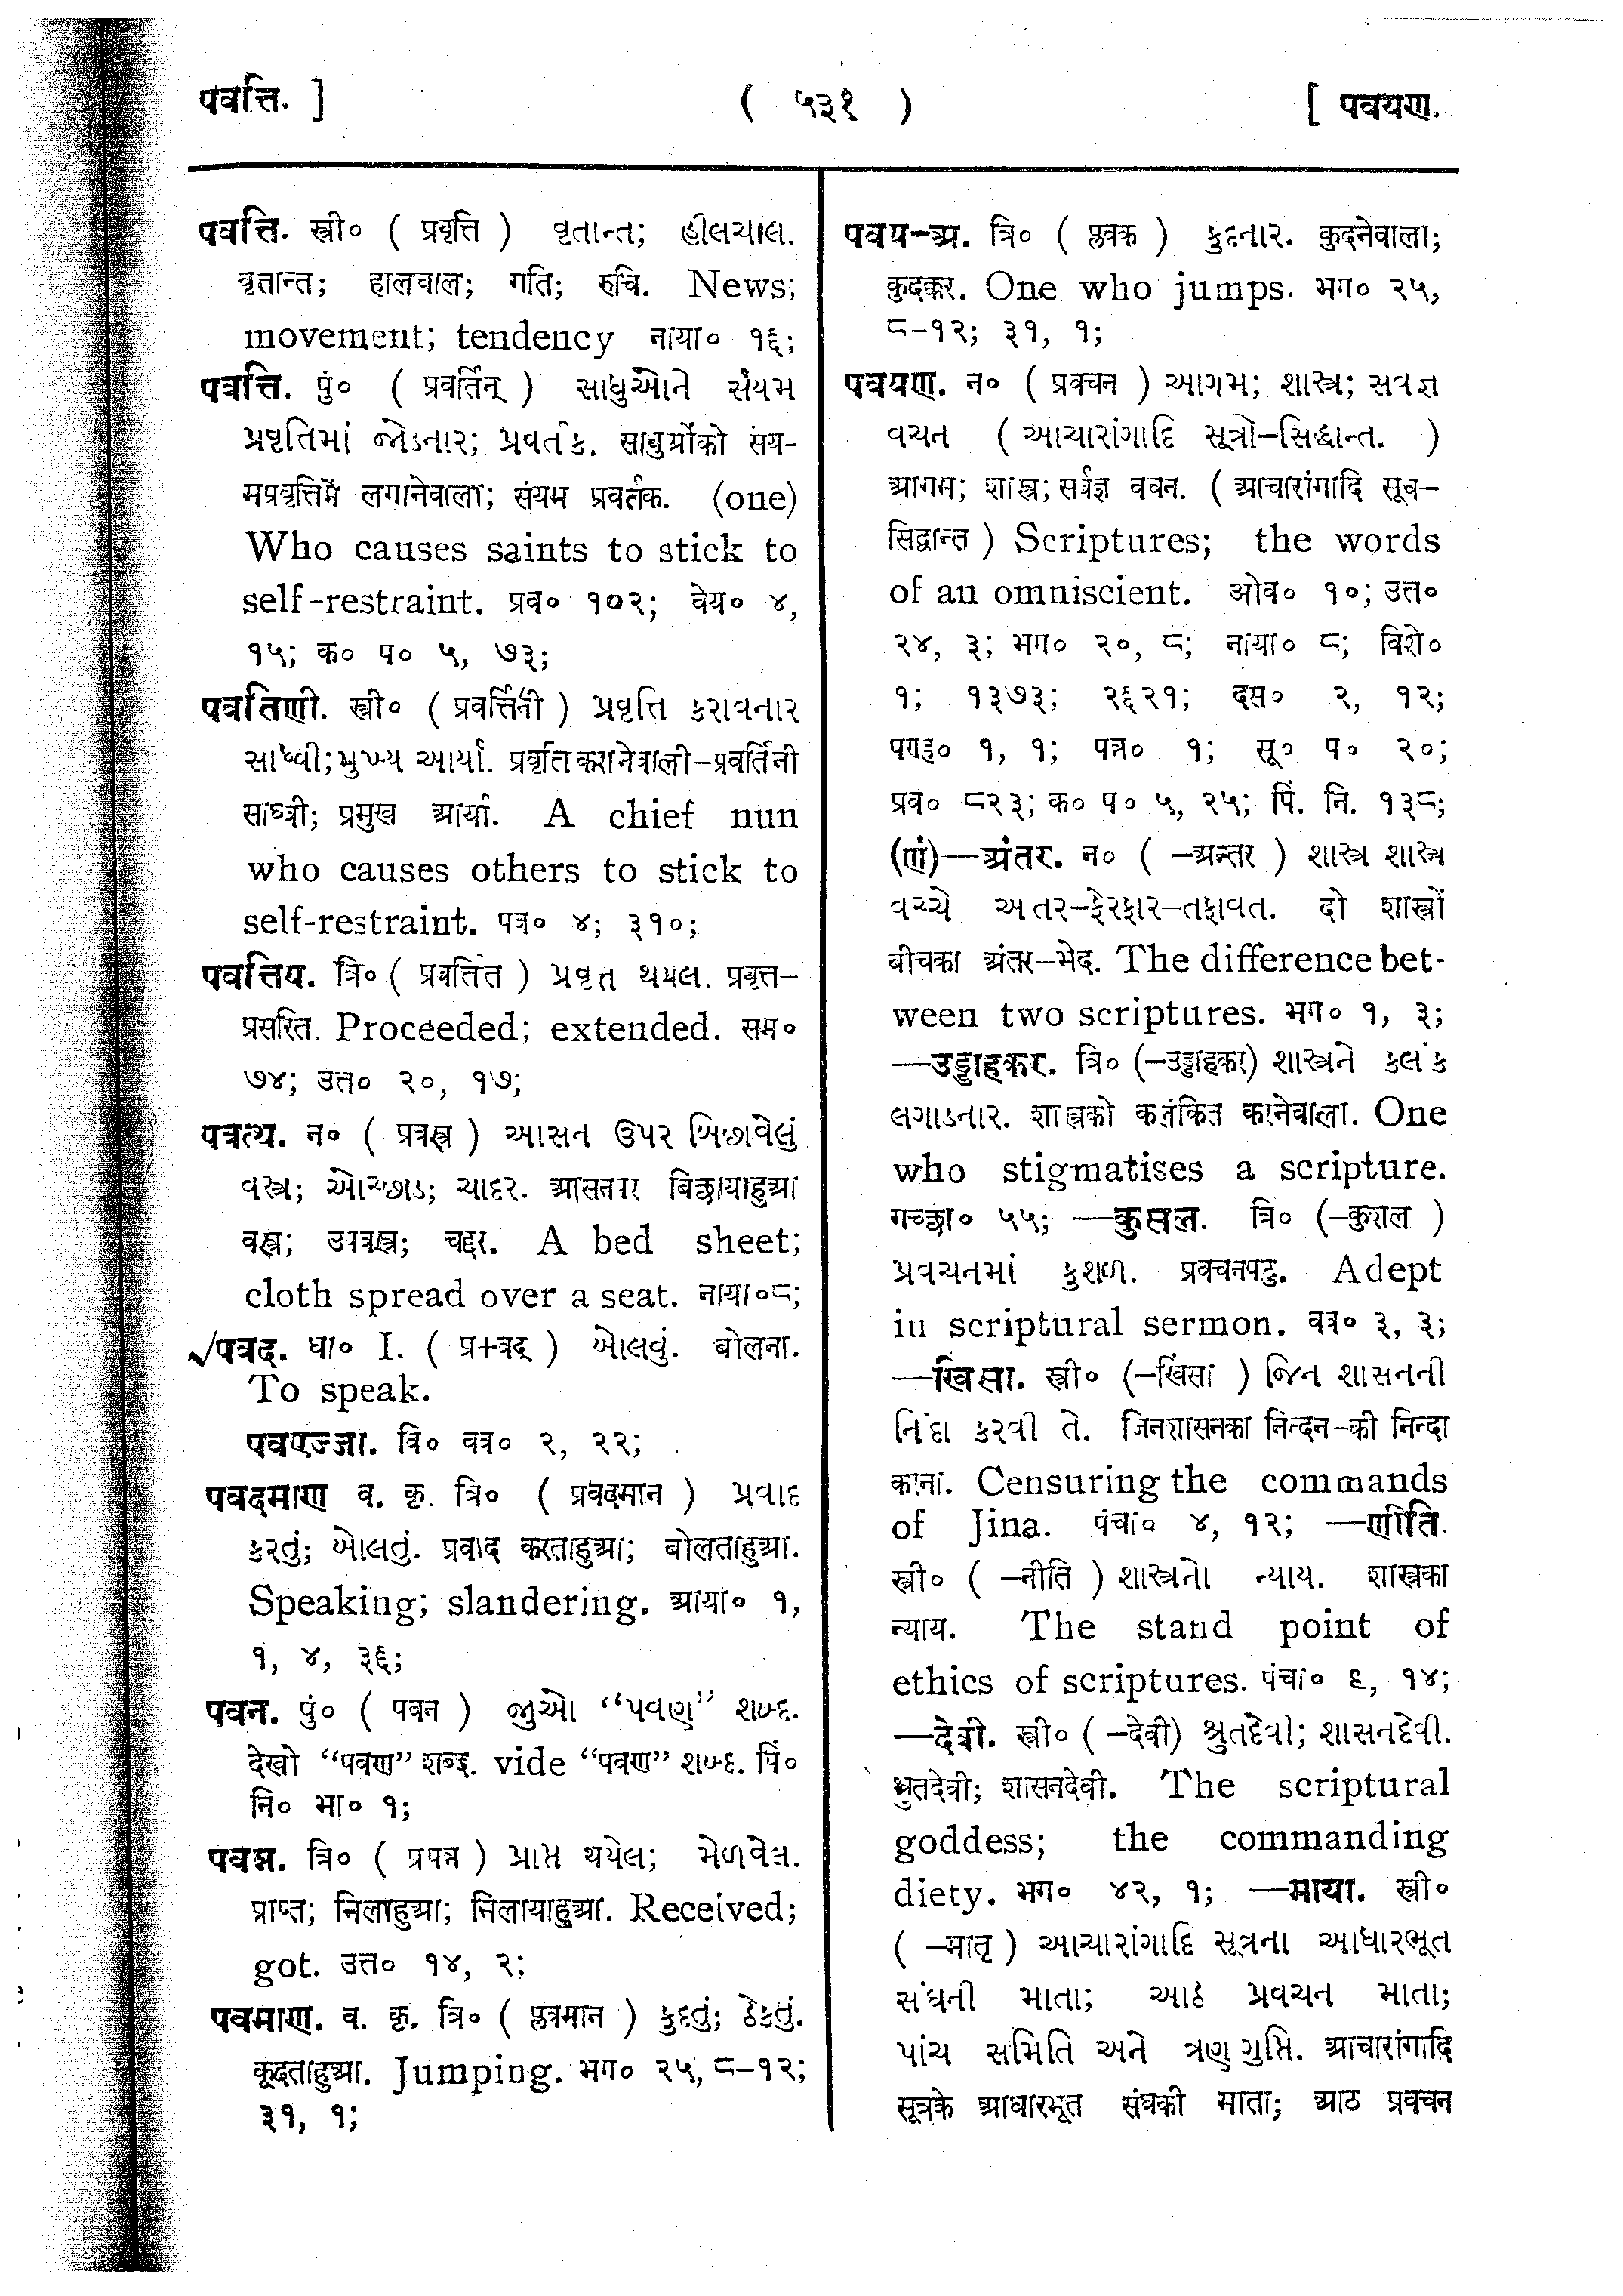 पवत्ति. ]
( ५३१ )
[ पवयण.
पवत्ति. स्त्री० ( प्रवृत्ति ) વૃતાન્ત; હીલચાલ.
वृत्तान्त; हालचाल; गति; रुचि. News;
movement; tendency नाया० १६;
पवत्ति. पुं० ( प्रवर्तिन् ) સાધુઓને સંયમ
પ્રવૃતિમાં જોડનાર; પ્રવર્તક. साधुओंको संय-
मप्रवृत्तिमें लगानेवाला; संयम प्रवर्तक. (one)
Who causes saints to stick to
self-restraint. प्रव० १०२; वेय० ४,
१५; क० प० ५, ७३;
पवत्तिणी. स्त्री० ( प्रवर्त्तिनी ) પ્રવૃત્તિ કરાવનાર
સાધ્વી; મુખ્ય આર્યા. प्रवृत्ति करानेवाली-प्रवर्तिनी
साध्वी; प्रमुख आर्या. A chief nun
who causes others to stick to
self-restraint. पत्र० ४; ३१०;
पवत्तिय. त्रि० ( प्रवर्त्तित ) પ્રવૃત્ત થયલ. प्रवृत्त-
प्रसरित. Proceeded; extended. सम०
७४; उत्त० २०, १७;
पवत्थ. न० ( प्रवस्त्र ) આસન ઉપર બિછાવેલું
વસ્ત્ર; ઓચ્છાડ; ચાદર. आसनपर बिछायाहुआ
वस्त्र; उपवस्त्र; चद्दर. A bed sheet;
cloth spread over a seat. नाया०८;
√पवद. धा० I. ( प्र+वद् ) બોલવું. बोलना.
To speak.
पवएज्जा. वि० वव० २, २२;
पवदमाण व. कृ. त्रि० ( प्रवदमान ) પ્રવાદ
કરતું; બોલતું. प्रवाद करताहुआ; बोलताहुआ.
Speaking; slandering. आया० १,
१, ४, ३६;
पवन. पुं० ( पवन ) જુઓ “પવણ” શબ્દ.
देखो “पवण” शब्द. vide “पवण” શબ્દ. पिं०
नि० भा० १;
पवन्न. त्रि० ( प्रपन्न ) પ્રાપ્ત થયેલ; મેળવેલ.
प्राप्त; मिलाहुआ; मिलायाहुआ. Received;
got. उत्त० १४, २;
पवमाण. व. कृ. त्रि० ( प्लवमान ) કુદતું; ઠેકતું.
कूदताहुआ. Jumping. भग० २५, ८-१२;
३१, १;
पवय-अ. त्रि० ( प्लवक ) કુદનાર. कुदनेवाला;
कुदक्कर. One who jumps. भग० २५,
८-१२; ३१, १;
पवयण. न० ( प्रवचन ) આગમ; શાસ્ત્ર; સર્વજ્ઞ
વચન ( આચારાંગાદિ સૂત્રો-સિદ્ધાન્ત. )
आगम; शास्त्र; सर्वज्ञ वचन. ( आचारांगादि सूत्र-
सिद्वान्त ) Scriptures; the words
of an omniscient. ओव० १०; उत्त०
२४, ३; भग० २०, ८; नाया० ८; विशे०
१; १३७३; २६२१; दस० २, १२;
पगह० १, १; पन्न० १; सू० प० २०;
प्रव० ८२३; क० प० ५, २५; पिं. नि. १३८;
(णं)—अंतर. न० ( -अन्तर ) શાસ્ત્ર શાસ્ત્ર
વચ્ચે અતર-ફેરફાર-તફાવત. दो शास्त्रों
बीचका अंतर-भेद. The difference bet-
ween two scriptures. भग० १, ३;
—उड्डाहकर. त्रि० (-उड्डाहकर) શાસ્ત્રને કલંક
લગાડનાર. शास्त्रको कलंकित करनेवाला. One
who stigmatises a scripture.
गच्छा० ५५; —कुसल. त्रि० (-कुशल )
પ્રવચનમાં કુશળ. प्रवचनपटु. Adept
in scriptural sermon. वव० ३, ३;
—खिंसा. स्त्री० (-खिंसा ) જિન શાસનની
નિંદા કરવી તે. जिनशासनका निन्दन-की निन्दा
करना. Censuring the commands
of Jina. पंचा० ४, १२; —णीति.
स्त्री० ( -नीति ) શાસ્ત્રનો ન્યાય. शास्त्रका
न्याय. The stand point of
ethics of scriptures. पंचा० ६, १४;
—देवी. स्त्री० ( -देवी) શ્રુતદેવી; શાસનદેવી.
श्रुतदेवी; शासनदेवी. The scriptural
goddess; the commanding
diety. भग० ४२, १; —माया. स्त्री०
( -मातृ ) આચારાંગાદિ સૂત્રના આધારભૂત
સંઘની માતા; આઠ પ્રવચન માતા;
પાંચ સમિતિ અને ત્રણ ગુપ્તિ. आचारांगादि
सूत्रके आधारभूत संघकी माता; आठ प्रवचन